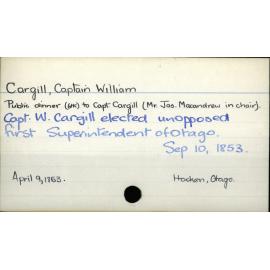 Cargill, Captain William
Public dinner (UK) to Capt. Cargill (Mr. Jas. Macandrew in chair).
Capt. W. Cargill elected unopposed
first Superintendent of Otago.
Sep 10, 1853.
April 9, 1863.
Hocken, Otago.